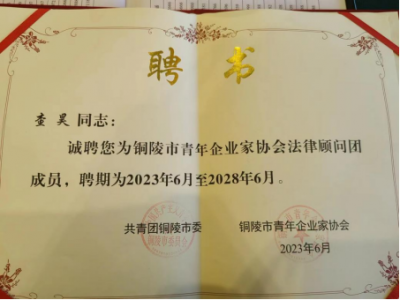 聘书
查昊同志：
诚聘您为铜陵市青年企业家协会法律顾问团
成员，聘期为2023年6月至2028年6月。
共青团铜陵市委 铜陵市青年企业家协会
2023年6月